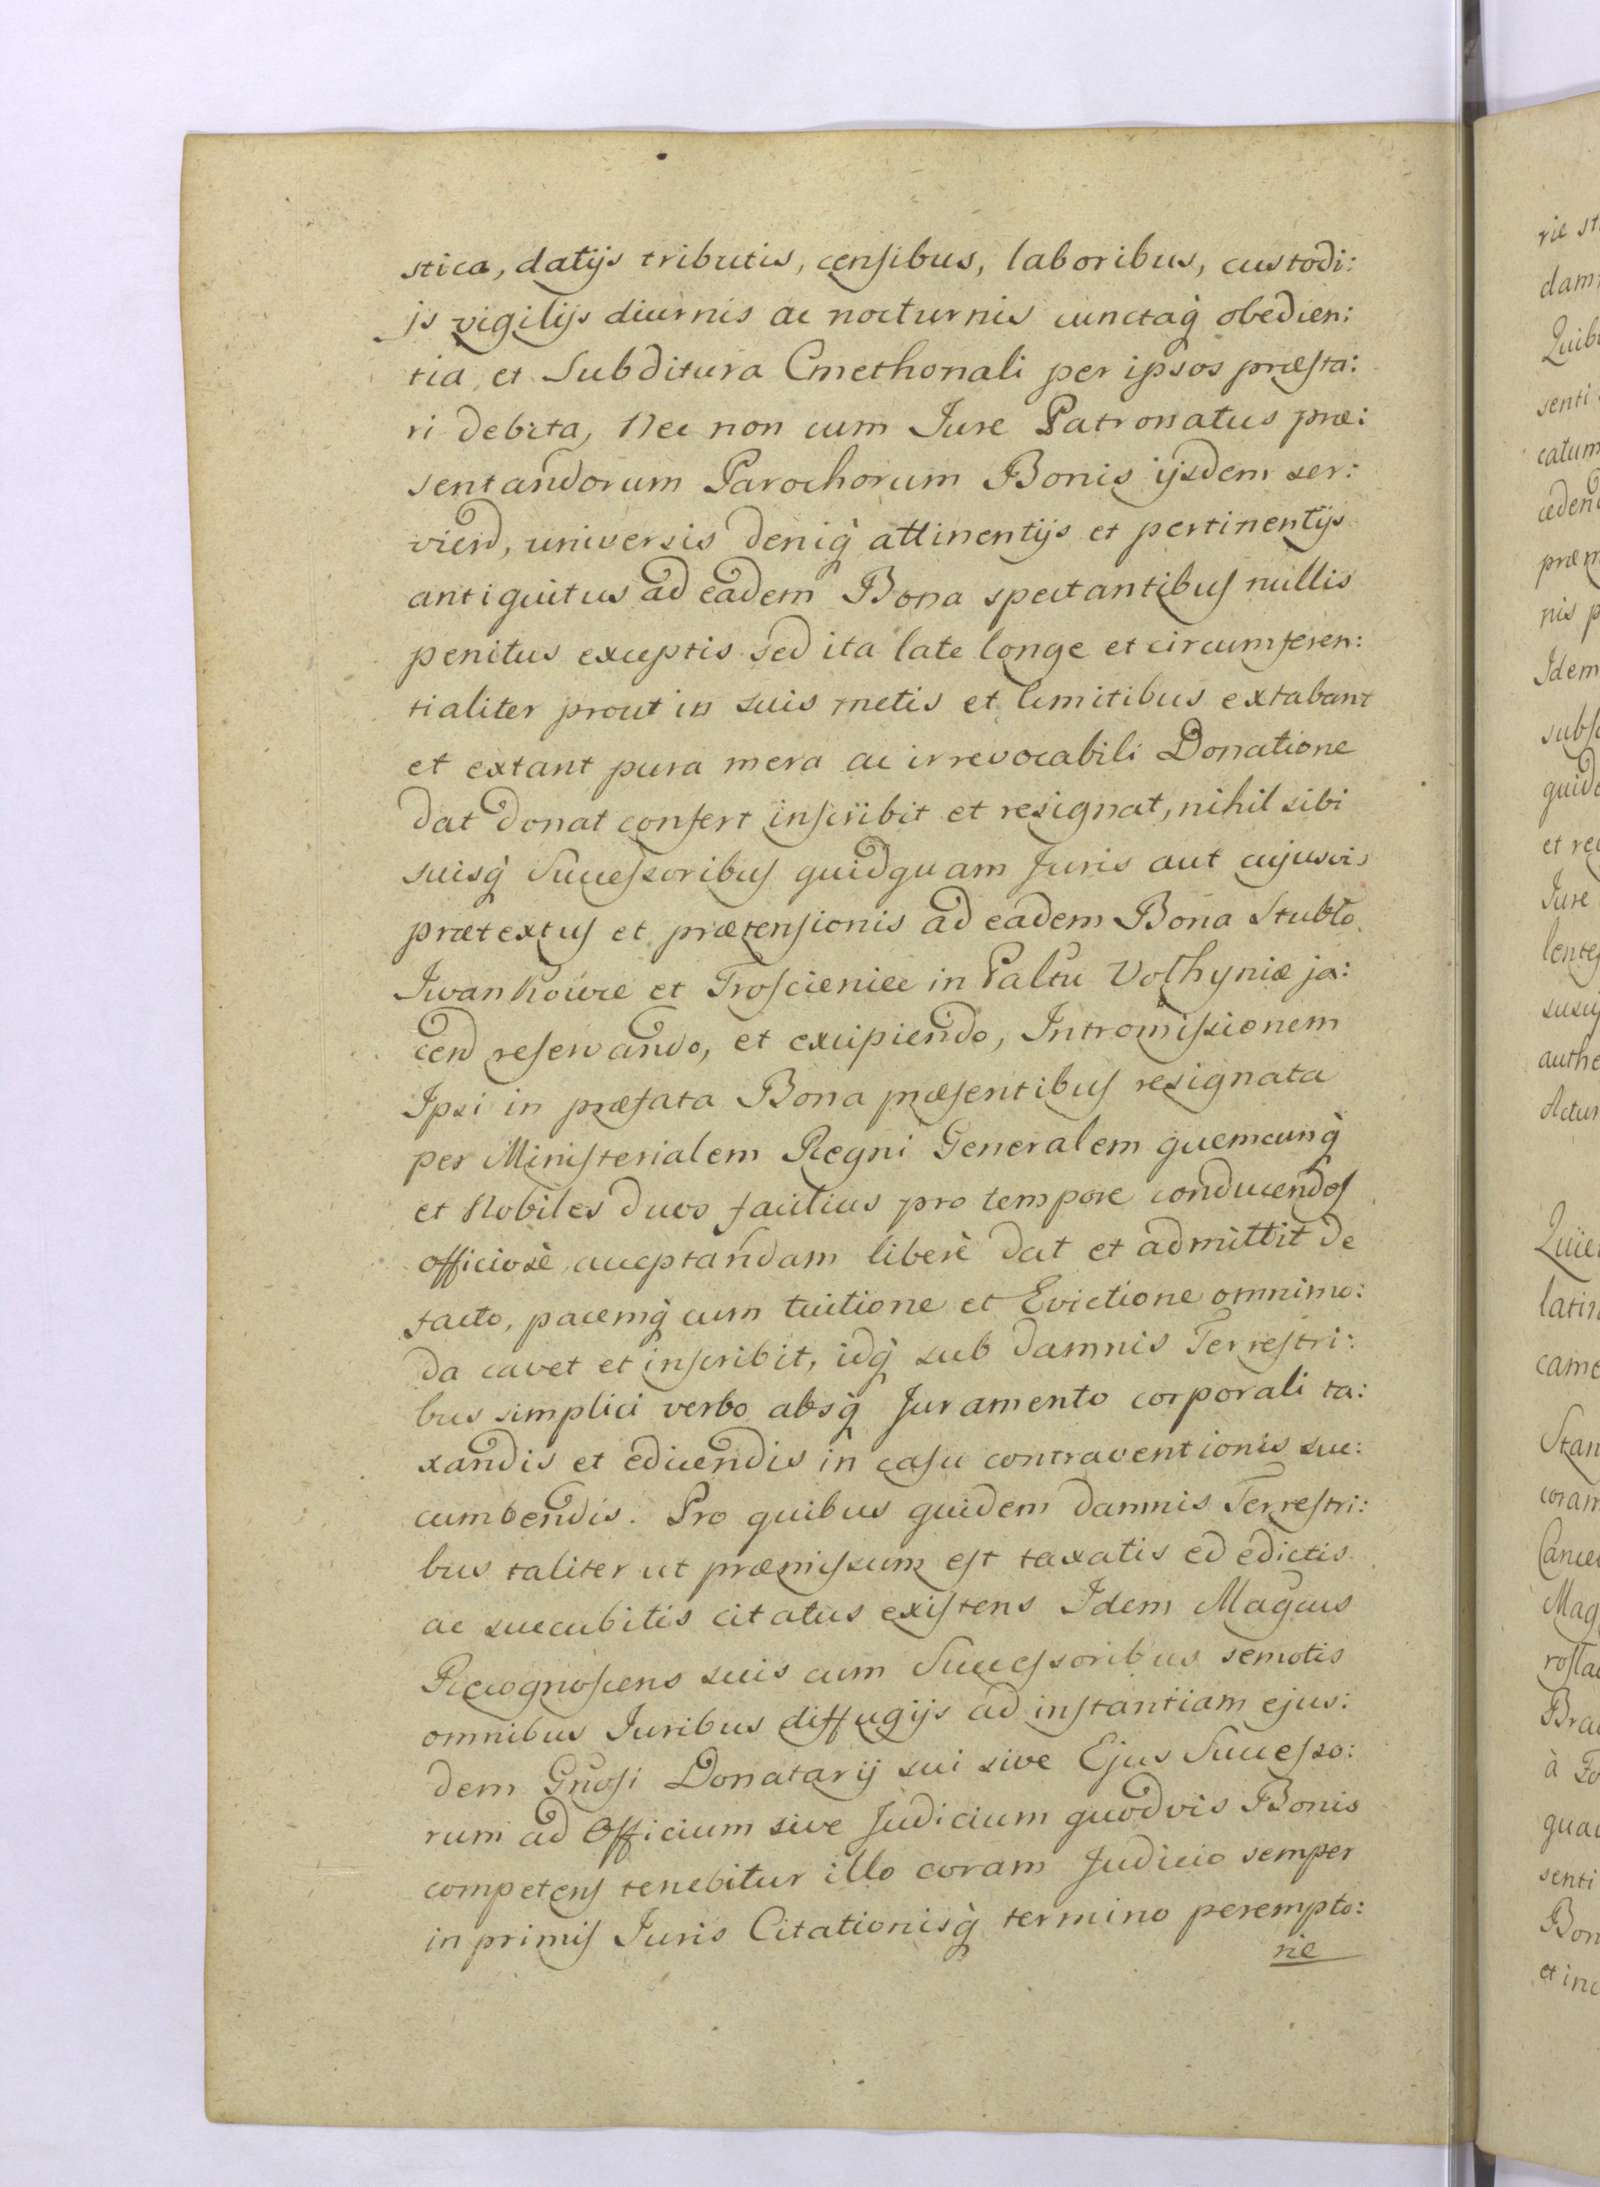 stica, datijs tributis, censibus, laboribus, custodi:
js vigilijs diurnis ac nocturnis cunctaq̀ obedien:
tia et Subditura Cmethonali per ipsos præsta:
ri debita, Nec non cum Jure Patronatus præ:
sentandorum Parochorum Bonis ijsdem ser:
viend, universis deniq̀ attinentijs et pertinentijs
antiquitus ad eadem Bona spectantibus nullis
penitus exceptis sed ita late longe et circumferen:
tialiter prout in suis metis et limitibus extabant
et extant pura mera ac irrevocabili Donatione
dat donat confert inscribit et resignat, nihil sibi
suisq̀ Successoribus quidquam Juris aut cujusvis
prætextus et prætensionis ad eadem Bona Stubło
Iwankowce et Troscieniec in Paltu Volhyniæ ja:
cend reservando, et excipiendo, Intromissionem
Ipsi in præfata Bona præsentibus resignata
per Ministerialem Regni Generalem quemcunq̀
et Nobiles duos facilius pro tempore conducendos
officiosè acceptandam liberè dat et admittit de
facto, pacemq̀ cum tuitione et Evictione omnimo:
da cavet et inscribit, idq̀ sub damnis Terrestri:
bus simplici verbo absq̀ Juramento corporali ta:
xandis et edicendis in casu contraventionis suc:
cumbendis. Pro quibus quidem damnis Terrestri:
bus taliter ut præmissum est taxatis ed edictis
ac succubitis citatus existens Idem Magcus
Recognoscens suis cum Successoribus semotis
omnibus Juribus diffugijs ad instantiam ejus:
dem Gnosi Donatarij sui sive Ejus Successo:
rum ad Officium sive Judicium quodvis Bonis
competens tenebitur illo coram Judicio semper
in primis Juris Citationisq̀ termino perempto:
rie